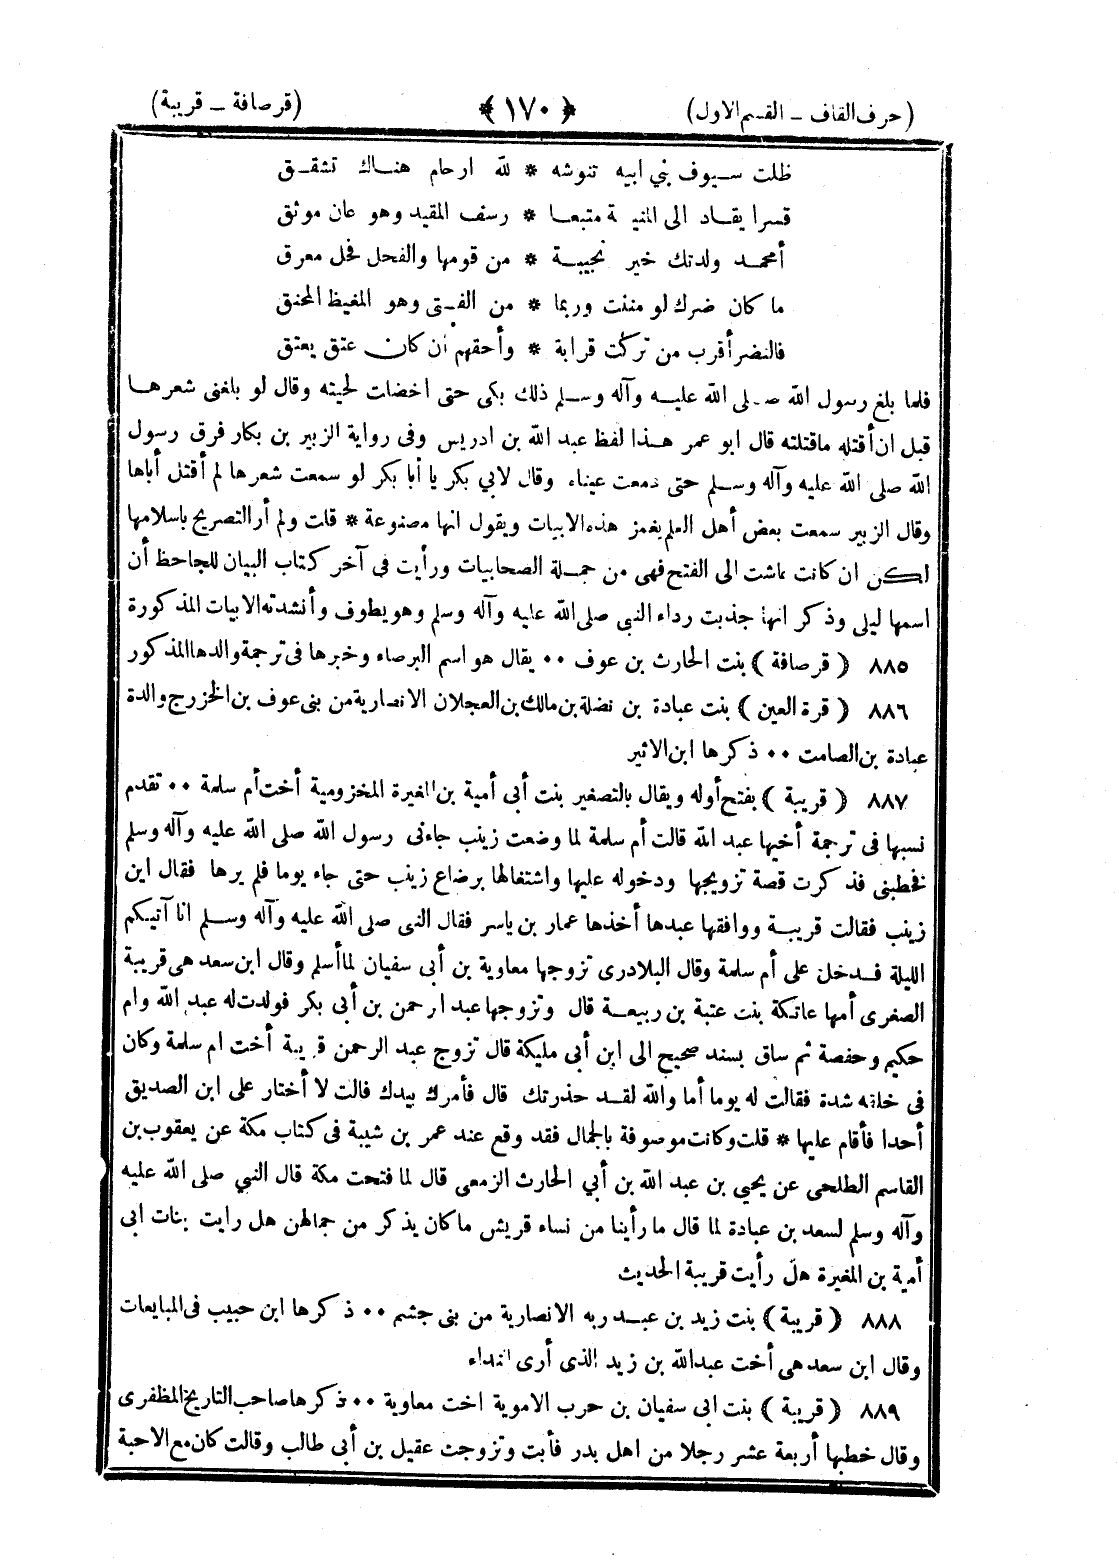 (حرف القاف - القسم الاول) ﴿ ١٧٠ ﴾ (قرصافة - قريبة)
ظلت سيوف بني ابيه تنوشه * لله ارحام هناك تشقق
قسرا يقاد الى المنية متبعا * رسف المقيد وهو عان موثق
أمحمد ولدتك خير نجيبة * من قومها والفحل فحل معرق
ما كان ضرك لو مننت وربما * من الفتى وهو المغيظ المحنق
فالنضر أقرب من تركت قرابة * وأحقهم أن كان عتق يعتق
فلما بلغ رسول الله صلى الله عليه وآله وسلم ذلك بكى حتى اخضلت لحيته وقال لو بلغنى شعرها
قبل ان أقتله ماقتلته قال ابو عمر هذا لفظ عبد الله بن ادريس وفى رواية الزبير بن بكار فرق رسول
الله صلى الله عليه وآله وسلم حتى دمعت عيناه وقال لابي بكر يا أبا بكر لو سمعت شعرها لم أقتل أباها
وقال الزبير سمعت بعض أهل العلم يغمز هذه الابيات ويقول انها مصنوعة * قلت ولم أر التصريح باسلامها
لكن ان كانت عاشت الى الفتح فهى من جملة الصحابيات ورأيت فى آخر كتاب البيان للجاحظ أن
اسمها ليلى وذكر انها جذبت رداء النبى صلى الله عليه وآله وسلم وهو يطوف وأنشدته الابيات المذكورة
٨٨٥ ﴿ قرصافة ﴾ بنت الحارث بن عوف ٠٠ يقال هو اسم البرصاء وخبرها فى ترجمة والدها المذكور
٨٨٦ ﴿ قرة العين ﴾ بنت عبادة بن نضلة بن مالك بن العجلان الانصارية من بنى عوف بن الخزرج والدة
عبادة بن الصامت ٠٠ ذكرها ابن الاثير
٨٨٧ ﴿ قريبة ﴾ بفتح أوله ويقال بالتصغير بنت أبى أمية بن المغيرة المخزومية أخت أم سلمة ٠٠ تقدم
نسبها فى ترجمة أخيها عبد الله قالت أم سلمة لما وضعت زينب جاءنى رسول الله صلى الله عليه وآله وسلم
فخطبنى فذكرت قصة تزويجها ودخوله عليها واشتغالها برضاع زينب حتى جاء يوما فلم يرها فقال اين
زينب فقالت قريبة ووافقها عبدها أخذها عمار بن ياسر فقال النبى صلى الله عليه وآله وسلم انا آتيكم
الليلة فدخل على أم سلمة وقال البلادرى تزوجها معاوية بن أبى سفيان لما أسلم وقال ابن سعد هى قريبة
الصغرى أمها عاتكة بنت عتبة بن ربيعة قال وتزوجها عبد الرحمن بن أبى بكر فولدت له عبد الله وام
حكيم وحفصة ثم ساق بسند صحيح الى ابن أبى مليكة قال تزوج عبد الرحمن قريبة أخت ام سلمة وكان
فى خلقه شدة فقالت له يوما أما والله لقد حذرتك قال فأمرك بيدك قالت لا أختار على ابن الصديق
أحدا فأقام عليها * قلت وكانت موصوفة بالجمال فقد وقع عند عمر بن شيبة فى كتاب مكة عن يعقوب بن
القاسم الطلحى عن يحيى بن عبد الله بن أبي الحارث الزمعى قال لما فتحت مكة قال النبي صلى الله عليه
وآله وسلم لسعد بن عبادة لما قال ما رأينا من نساء قريش ما كان يذكر من جمالهن هل رايت بنات ابى
أمية بن المغيرة هل رأيت قريبة الحديث
٨٨٨ ﴿ قريبة ﴾ بنت زيد بن عبد ربه الانصارية من بنى جشم ٠٠ ذكرها ابن حبيب فى المبايعات
وقال ابن سعد هى أخت عبد الله بن زيد الذى أرى النداء
٨٨٩ ﴿ قريبة ﴾ بنت ابى سفيان بن حرب الاموية اخت معاوية ٠٠ ذكرها صاحب التاريخ المظفرى
وقال خطبها أربعة عشر رجلا من اهل بدر فأبت وتزوجت عقيل بن أبى طالب وقالت كان مع الاحبة